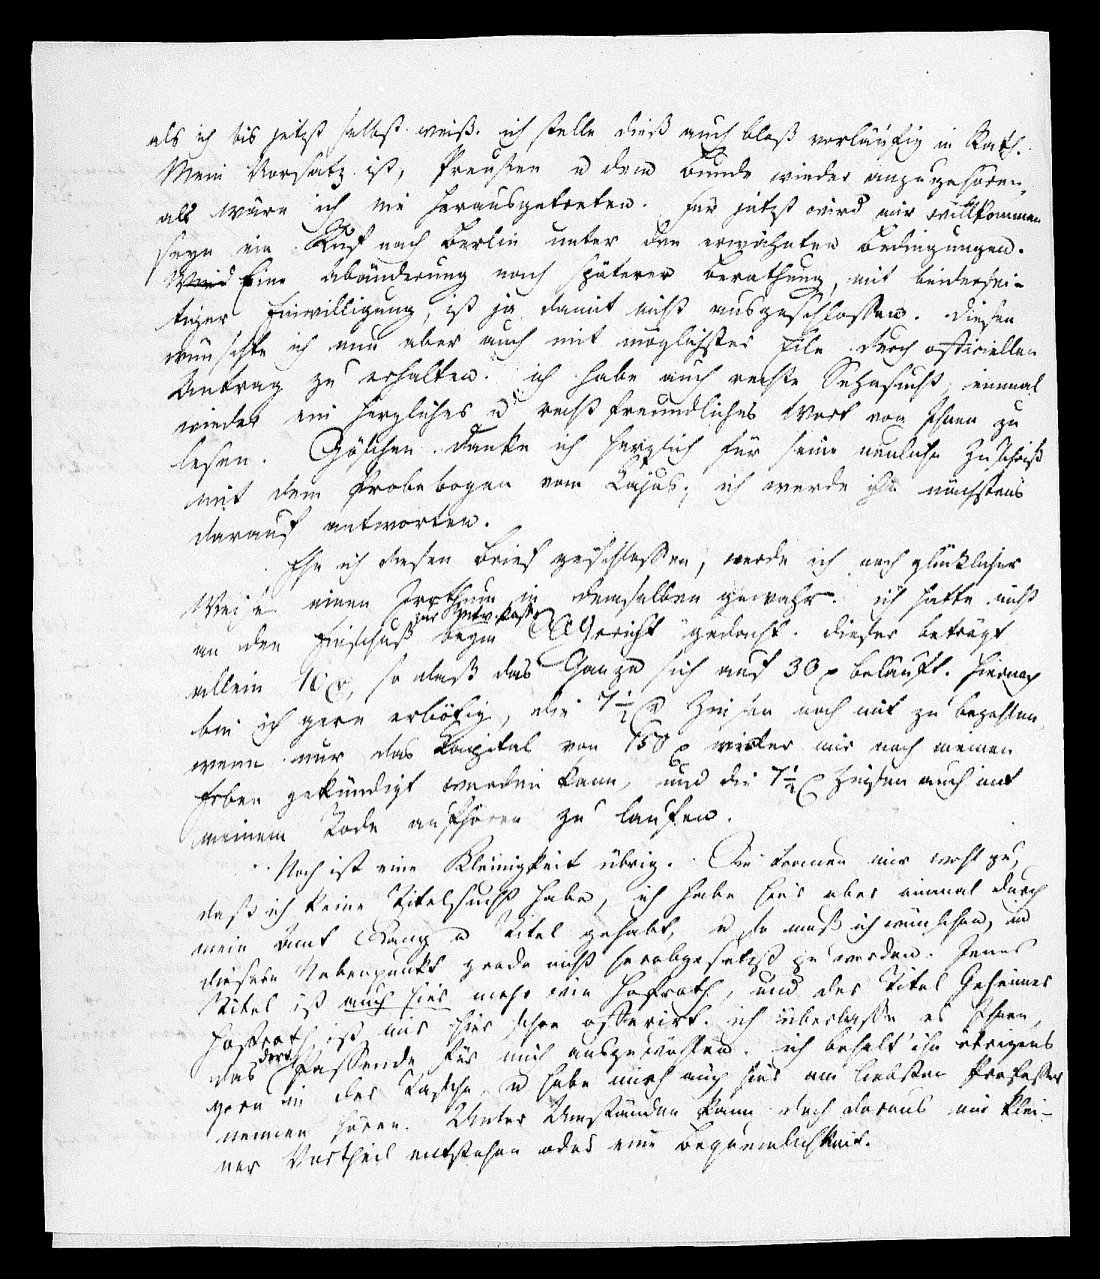 als ich bis jetzt selbst weiß. ich stelle dieß auch bloß vorläufig in Rath.
Mein Vorsatz ist, Preußen u dem Bunde wieder anzugehören,
als wäre ich nie herausgetreten. Für jetzt wird mir willkommen
seyn ein Ruf nach Berlin unter den erwähnten Bedingungen.
Eine Abänderung nach späterer Berathung, mit beidersei-
tiger Einwilligung, ist ja damit nicht ausgeschlossen. Diesen
wünschte ich nun aber auch mit möglichster Eile durch officiellen
Antrag zu erhalten. ich habe auch rechte Sehnsucht, einmal
wieder ein herzliches u recht freundliches Wort von Ihnen zu
lesen. Göschen danke ich herzlich für seine neuliche Zuschrift
mit dem Probebogen vom Gajus; ich werde ihm nächstens
darauf antworten.
Ehe ich diesen Brief geschlossen, werde ich noch glücklicher
Weise einen Irrthum in demselben gewahr. ich hatte nicht
an den Einschuß zur Witw.kasse beym gedacht. Dieser beträgt
allein 10 , so daß das Ganze sich auf 30 beläuft. Hiernach
bin ich gern erbötig, die 7½ Zinsen noch mit zu bezahlen,
wenn nur das Kapital von 150 weder mir noch meinen
Erben gekündigt werden kann, und die 7½ Zinsen auch mit
meinem Tode aufhören zu laufen.
Noch ist eine Kleinigkeit übrig. Sie trauen mir wohl zu,
daß ich keine Titelsucht habe, ich habe hier aber einmal durch
mein Amt Rang u Titel gehabt, u da muß ich wünschen, in
diesem Nebenpunkt grade nicht herabgesetzt zu werden. Jener
Titel ist auch hier mehr wie Hofrath, und der Titel Geheimer
Hofrath ist mir hier schon offerirt. ich überlasse es Ihnen,
das dort Passende für mich auszuwählen. ich behalt ihn übrigens
gern in der Tasche u habe mich auch hier am liebsten Professor
nennen hören. Unter Umständen kann doch daraus ein klei-
ner Vortheil entstehen oder eine Bequemlichkeit.